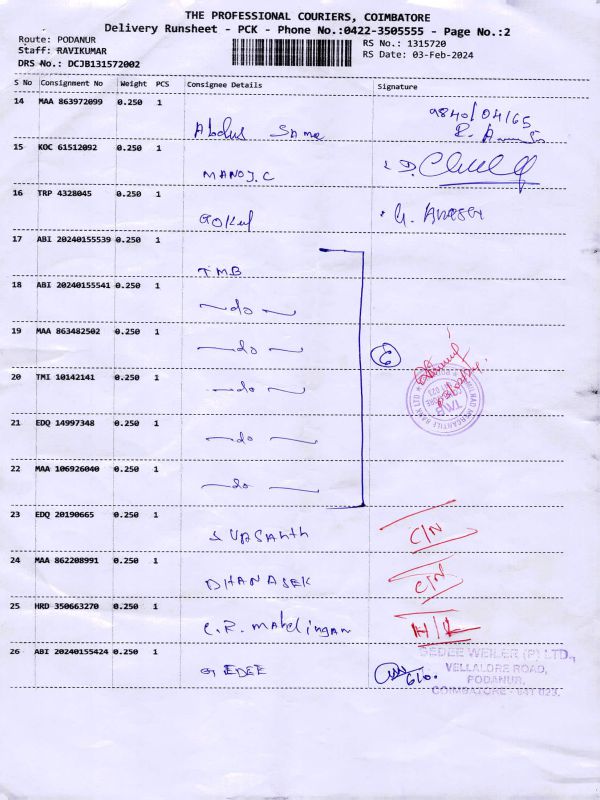 THE PROFESSIONAL COURIERS, COIMBATORE
Delivery Runsheet - PCK - Phone No.:0422-3505555 - Page No.:2
Route: PODANUR
RS No.: 1315720
Staff: RAVIKUMAR
RS Date: 03-Feb-2024
DRS No.: DCJB131572002
S No Consignment No Weight PCS Consignee Details Signature
14 MAA 863972099 0.250 1
9840104165
Abdus Sama
15 KOC 61512092 0.250 1
MANOJ.C
16 TRP 4328045 0.250 1
GOKul
17 ABI 20240155539 0.250 1
TMB
18 ABI 20240155541 0.250 1
-do-
19 MAA 863482502 0.250 1
-do-
6
20 TMI 10142141 0.250 1
-do-
21 EDQ 14997348 0.250 1
-do-
TAMILNAD MERCANTILE BANK LTD
TMB
22 MAA 106926040 0.250 1
-do-
23 EDQ 20190665 0.250 1
C/N
24 MAA 862208991 0.250 1
DHANASEK
C/N
25 HRD 350663270 0.250 1
C.R. Mahelingam
H/L
26 ABI 20240155424 0.250 1
GEDEE
GEDEE WEILER (P) LTD.,
VELLALORE ROAD,
PODANUR,
COIMBATORE - 641 023.